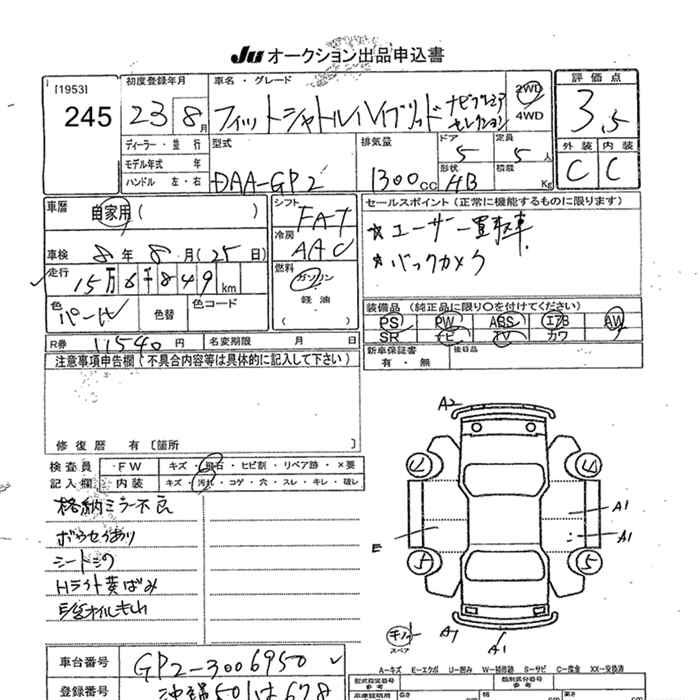 JU オークション出品申込書
[1953]
245
初度登録年月
23 8月
車名・グレード
フィットシャトルハイブリッド ナビプレミアムセレクション
2WD
4WD
評価点
3.5
外装 内装
C C
ディーラー・並行
モデル年式 年
ハンドル 左・右
型式
DAA-GP2
排気量
1300cc
ドア
5
定員
5人
形状
HB
積載
Kg
車歴
自家用 ( )
車検 8年8月(25日)
走行
15万6千849km
色
パール
色替
色コード
シフト
FAT
冷房
AAC
燃料
ガソリン
軽油
( )
セールスポイント(正常に機能するものに限ります)
バックカメラ
装備品(純正品に限り○を付けてください)
PS PW ABS エアB AW
SR ナビ TV カワ
新車保証書
有・無
後日品
R券 11540円
名変期限 月 日
注意事項申告欄(不具合内容等は具体的に記入して下さい)
修復歴 有〔箇所 〕
検査員
記入欄
FW キズ・飛石・ヒビ割・リペア跡・×要
内装 キズ・汚れ・コゲ・穴・スレ・キレ・破レ
格納ミラー不良
シートシミ
Hライト黄ばみ
A2
A1
A1
E
スペア
A1
A-キズ E-エクボ U-凹み W-補修跡 S-サビ C-腐食 XX-交換済
車台番号
GP2-3006950
登録番号
型式指定番号
類別区分番号
参考
参考
長さ
cm